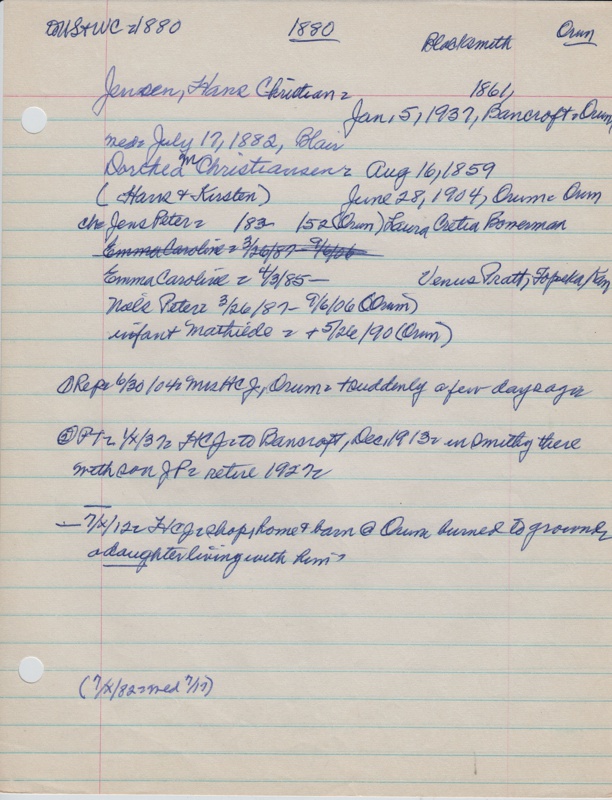 to US+WC=1880 1880 Blacksmith Orum
Jensen, Hans Christian= 1861,
Jan. 5, 1937, Bancroft= Orum
med= July 17, 1882, Blair
Dorthed m Christiansen= Aug 16, 1859
(Hans & Kirsten) June 28, 1904, Orum= Orum
ch= Jens Peter= /83- /52 (Orum) Laura Cretia Bowerman
Emma Caroline = 3/26/87- 9/6/06
Emma Caroline = 4/3/85— Venus Pratt, Topeka/Kan
Nels Peter= 3/26/87- 9/6/06 (Orum)
infant Mathilde = + 5/26/90 (Orum)
① Rep= 6/30/04= Mrs HCJ, Orum= + suddenly a few days ago=
② PT= 1/X/37= HCJ= to Bancroft, Dec. 1913= in smithy there
with son JP= retire 1927=
— 7/X/12= HCJ= shop, home & barn @ Orum burned to ground,
a daughter living with him=
(7/X/82= med 7/17)